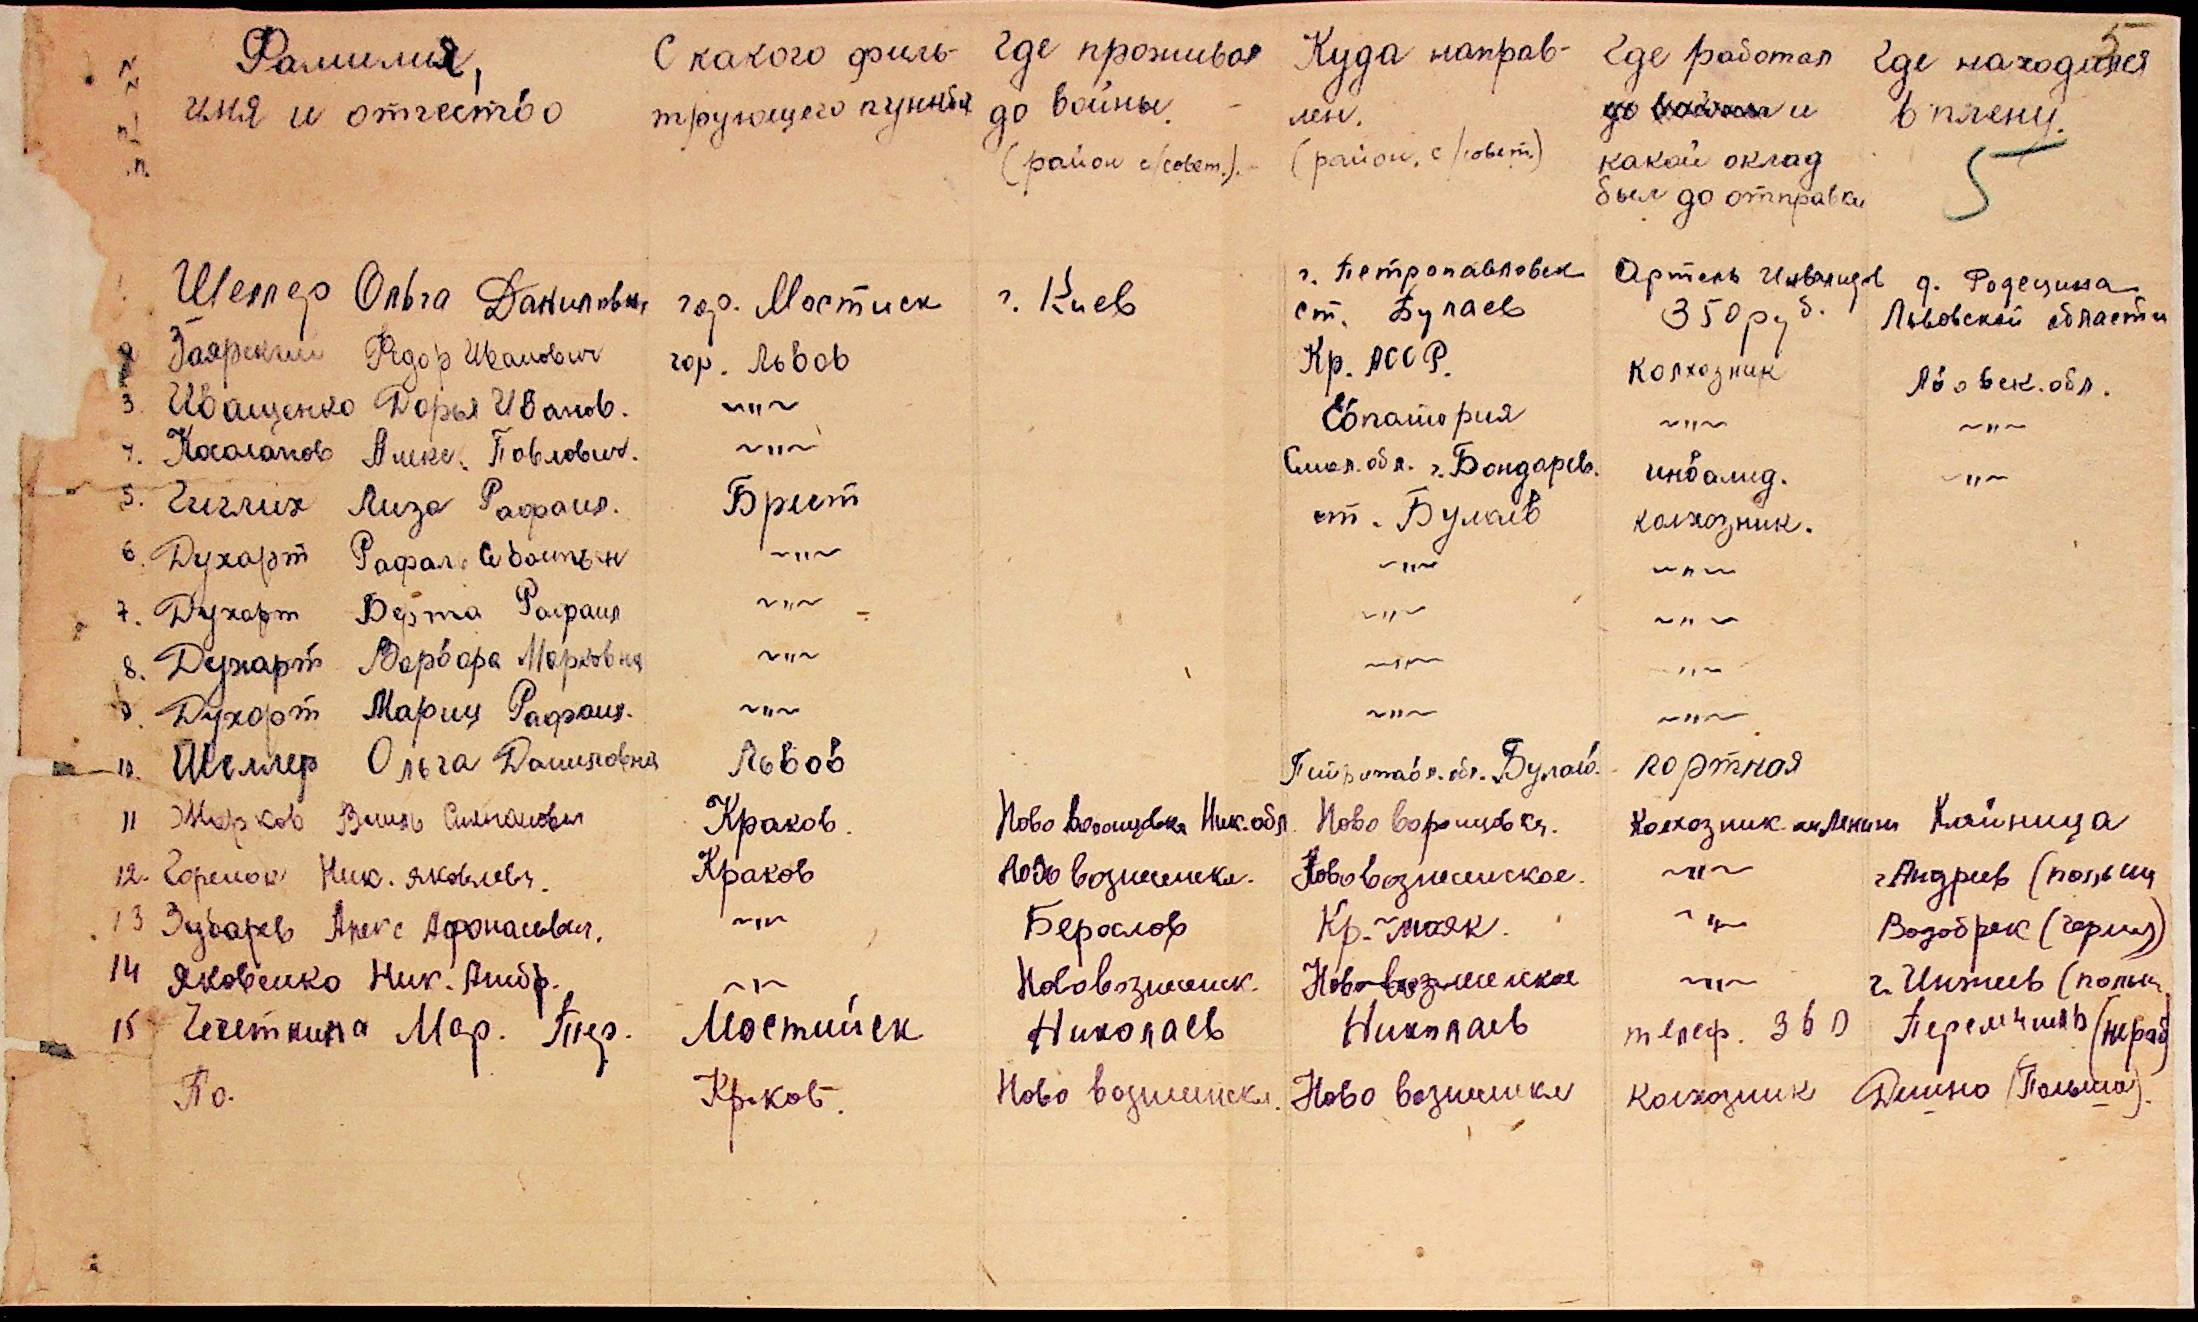 №№ п/п. Фамилия, имя и отчество С какого филь- трующего пункта Где проживал до войны. (район с/совет.). Куда направ- лен. (район, с/совет.) Где работал до войны и какой оклад был до отправки Где находился в плену. 5
5
1. Шеллер Ольга Даниловна гор. Мостиск г. Киев г. Петропавловск ст. Булаев Артель Инвалидов 350 руб. д. Родецина Львовской области
2 Заярский Федор Иванович гор. Львов Кр. АССР. колхозник Львовск. обл.
3. Иващенко Дарья Иванов. ~"~ Евпатория ~"~ ~"~
4. Алекс. Павлович. ~"~ Смол. обл. г. Бондарев. инвалид. ~"~
5. Лиза Рафаил. Брест ст. Булаев колхозник.
6. Духарт Рафаил Себастьян ~"~ ~"~ ~"~
7. Духарт Берта Рафаил ~"~ ~"~ ~"~
8. Духарт Варвара Марковна ~"~ ~"~ ~"~
9. Духарт Мария Рафаил. ~"~ ~"~ ~"~
10. Шеллер Ольга Даниловна Львов Петропавл. обл. Булаев. портная
11 Жарков Степанович Краков. Ново Воронцовка Ник. обл. Ново Воронцовка. Колхозник им Ленина Кляйница
12. Горенок Ник. Яковлевич. Краков Ново вознесенск. Нововознесенское. ~"~ г. Андрев (польш
13 Зубарев Алекс Афанасьевич. ~"~ Берослов Кр.-маяк. ~"~ Водобрек (герман)
14 Яковенко Ник. Андр. ~"~ Нововознесенск. Нововознесенское ~"~ г. (польш
15 Чечеткина Мар. Пет. Мостийск Николаев Николаев телеф. 360 Перемышль (нераб)
По. Краков. Ново вознесенск. Ново вознесенск колхозник (Польша).